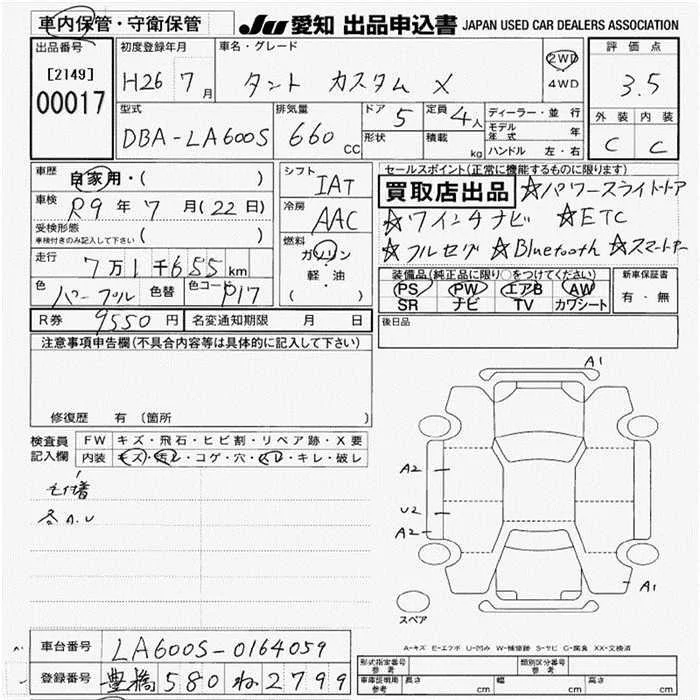 車内保管・守衛保管 JU 愛知 出品申込書 JAPAN USED CAR DEALERS ASSOCIATION
出品番号 初度登録年月 車名・グレード 評価点
[2149] H26 7月 タント カスタム X 2WD 4WD 3.5
00017
型式 排気量 ドア 5 定員 4人 ディーラー・並行 外装 内装
DBA-LA600S 660 CC 形状 積載 kg モデル年式 年 C C
ハンドル 左・右
車歴 自家用・( ) シフト IAT セールスポイント(正常に機能するものに限ります)
車検 R9年 7月(22日) 冷房 AAC 買取店出品 ☆パワースライドドア
受検形態 ☆ワインナビ ☆ETC
車検付きのみ記入して下さい ( ) 燃料 ガソリン ☆フルセグ ☆Bluetooth ☆スマートキー
走行 7万1千655km 軽・油 装備品(純正品に限り○をつけてください) 新車保証書
色 パープル 色替 色コード P17 ( ) PS PW エアB AW 有・無
SR ナビ TV カワシート
R券 9550円 名変通知期限 月 日 後日品
注意事項申告欄(不具合内容等は具体的に記入して下さい)
修復歴 有(箇所 )
検査員 FW キズ・飛石・ヒビ割・リペア跡・X要
記入欄 内装 キズ・汚レ・コゲ・穴・スレ・キレ・破レ
各A.U
A1
A2
U2
A2
A1
スペア
A-キズ E-エクボ U-凹み W-補修跡 S-サビ C-腐食 XX-交換済
車台番号 LA600S-0164059
登録番号 豊橋 580 ね 2799
形式指定番号 参考 類別区分番号 参考
車庫証明用 参考 長さ cm 幅 cm 高さ cm